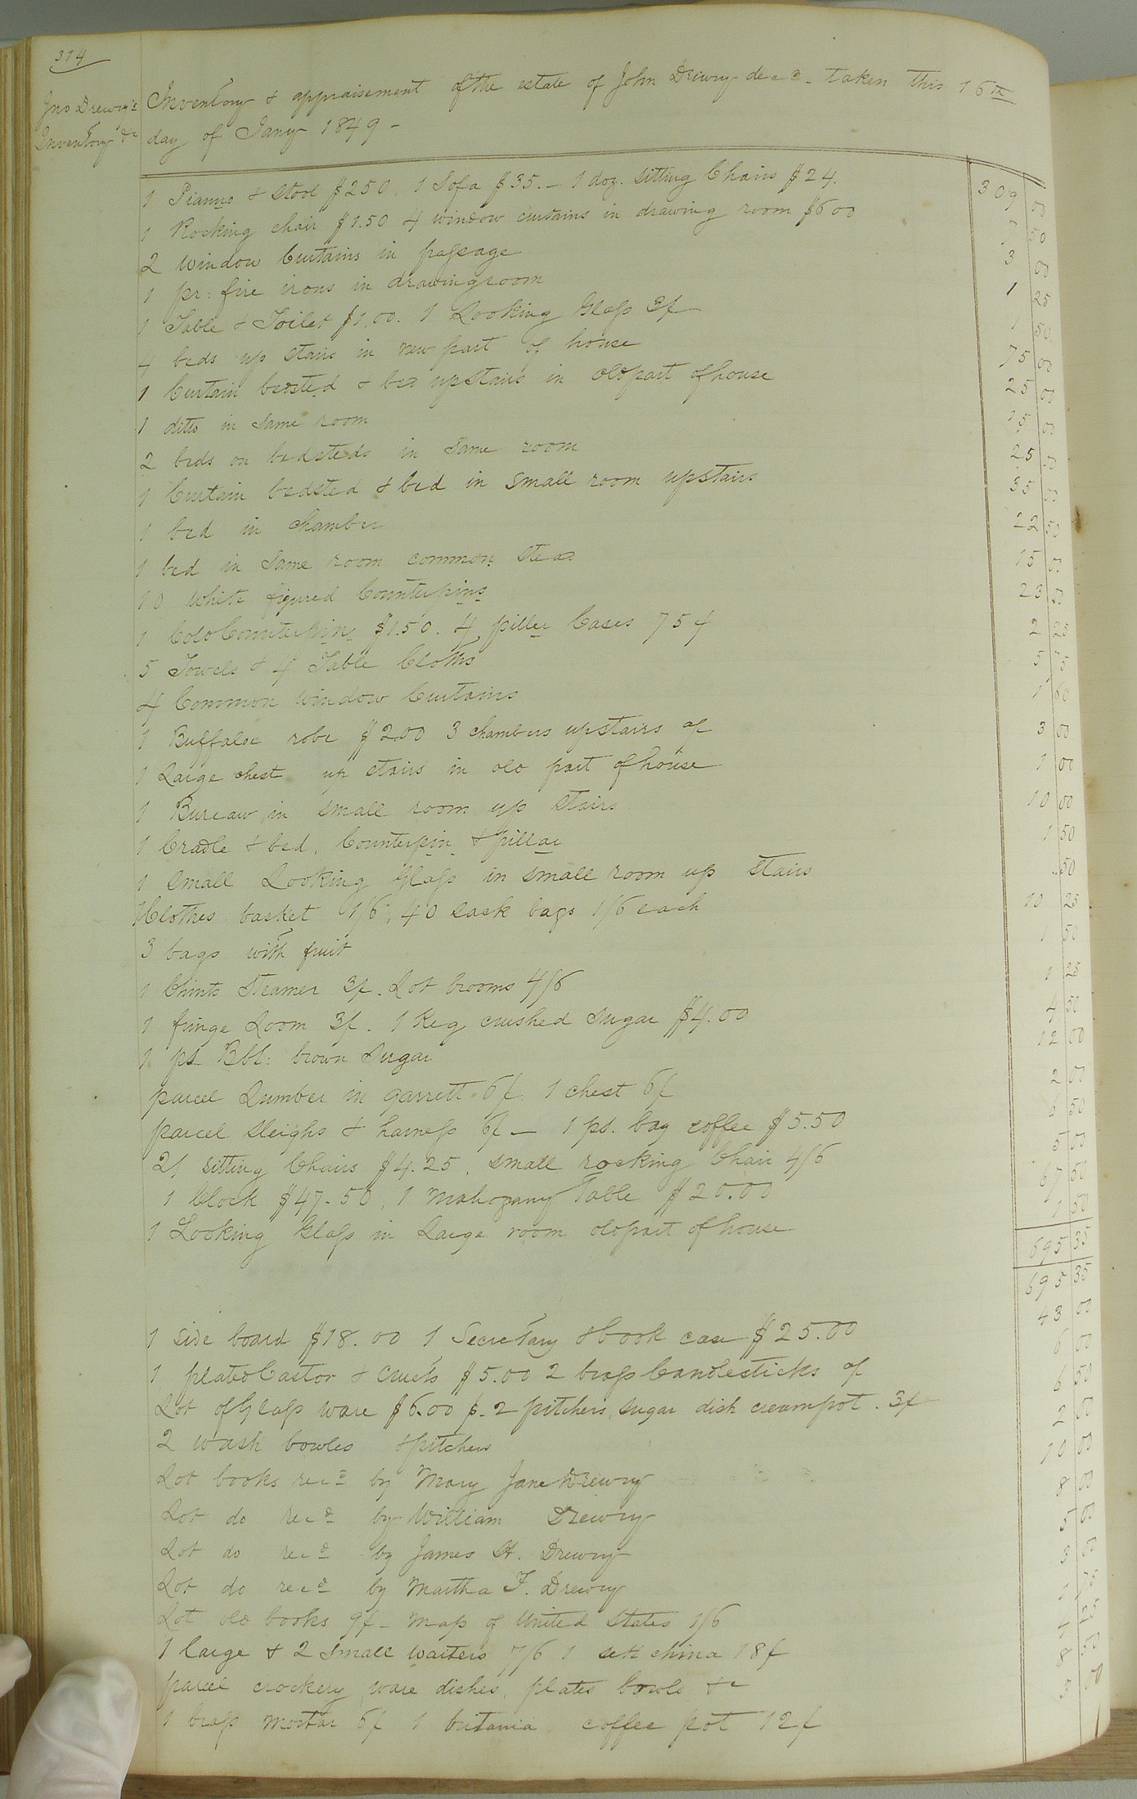 314
Jno Drewry's
Inventory &c
Inventory & appraisement of the estate of John Drewry decd taken this 16th
day of Jany 1849 -
1 Pianno & stool $250. 1 Sofa $35. - 1 doz. sitting Chairs $24. 309 00
1 Rocking chair $1.50 4 window curtains in drawing room $6.00 7 50
2 window Curtains in passage 3 00
1 pr. fire irons in drawing room 1 25
1 Table & Toilet $1.00. 1 Looking Glass 3/ 1 50
4 beds up stairs in new part of house 75 00
1 Curtain bedsted & bed upstairs in old part of house 25 00
1 ditto in same room 15 00
2 beds on bedsteds in same room 25 00
1 Curtain bedsted & bed in small room upstairs 35 00
1 bed in chamber 22 50
1 bed in same room common stead 15 00
10 white figured Counterpins 23 00
1 Cold Counterpins $1.50. 4 piller Cases 75¢ 2 25
5 Towels & 4 Table Cloths 5
4 Common window Curtains 1
1 Buffaloe robe $2.00 3 chambers upstairs 9/ 3 00
1 Large chest up stairs in old part of house 1 00
1 Bureaw in small room up stairs 10 00
1 Cradle & bed, Counterpin & pillar 1 50
1 small Looking Glass in small room up stairs 50
1 Clothes basket 1/6, 40 sack bags 1/6 each 10 25
3 bags with fruit 1 50
1 Chints Tramer 3/. Lot brooms 4/6 1 25
1 fringe Loom 3/. 1 Keg crushed sugar $4.00 4 50
1 ps Bbl: brown Sugar 12 00
parcel Lumber in garrett 6/. 1 chest 6/ 2 00
parcel sleighs & harness 6/ - 1 ps. bag coffee $5.50 6 50
21 sitting Chairs $4.25, small rocking Chair 4/6 5 00
1 Clock $47.50, 1 Mahogany Table $20.00 67 50
1 Looking Glass in Large room old part of house 1 50
695 35
695 35
1 side board $18.00 1 Secretary & book case $25.00 43 00
1 plated Castor & Cruets $5.00 2 brass Candlesticks 6/ 6 00
Lot of Glass ware $6.00 $. 2 pitchers, sugar dish creampot. 3/ 6 50
2 wash bowles & pitchers 2 00
Lot books recd by Mary Jane Drewry 10 00
Lot do recd by William Drewry 8 00
Lot do recd by James H. Drewry 5 00
Lot do recd by Martha F. Drewry 3
Lot old books 9/ - map of United States 1/6 1
1 large & 2 small waiters 7/6 1 sett china 18/
parcel crockery ware dishes, plates bowls &c 8
1 brass mortar 6/ 1 britania coffee pot 12/ 3 00